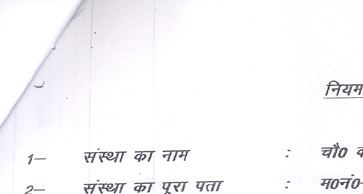 नियम
1— संस्था का नाम : चौ0
2— संस्था का पूरा पता : म0नं0